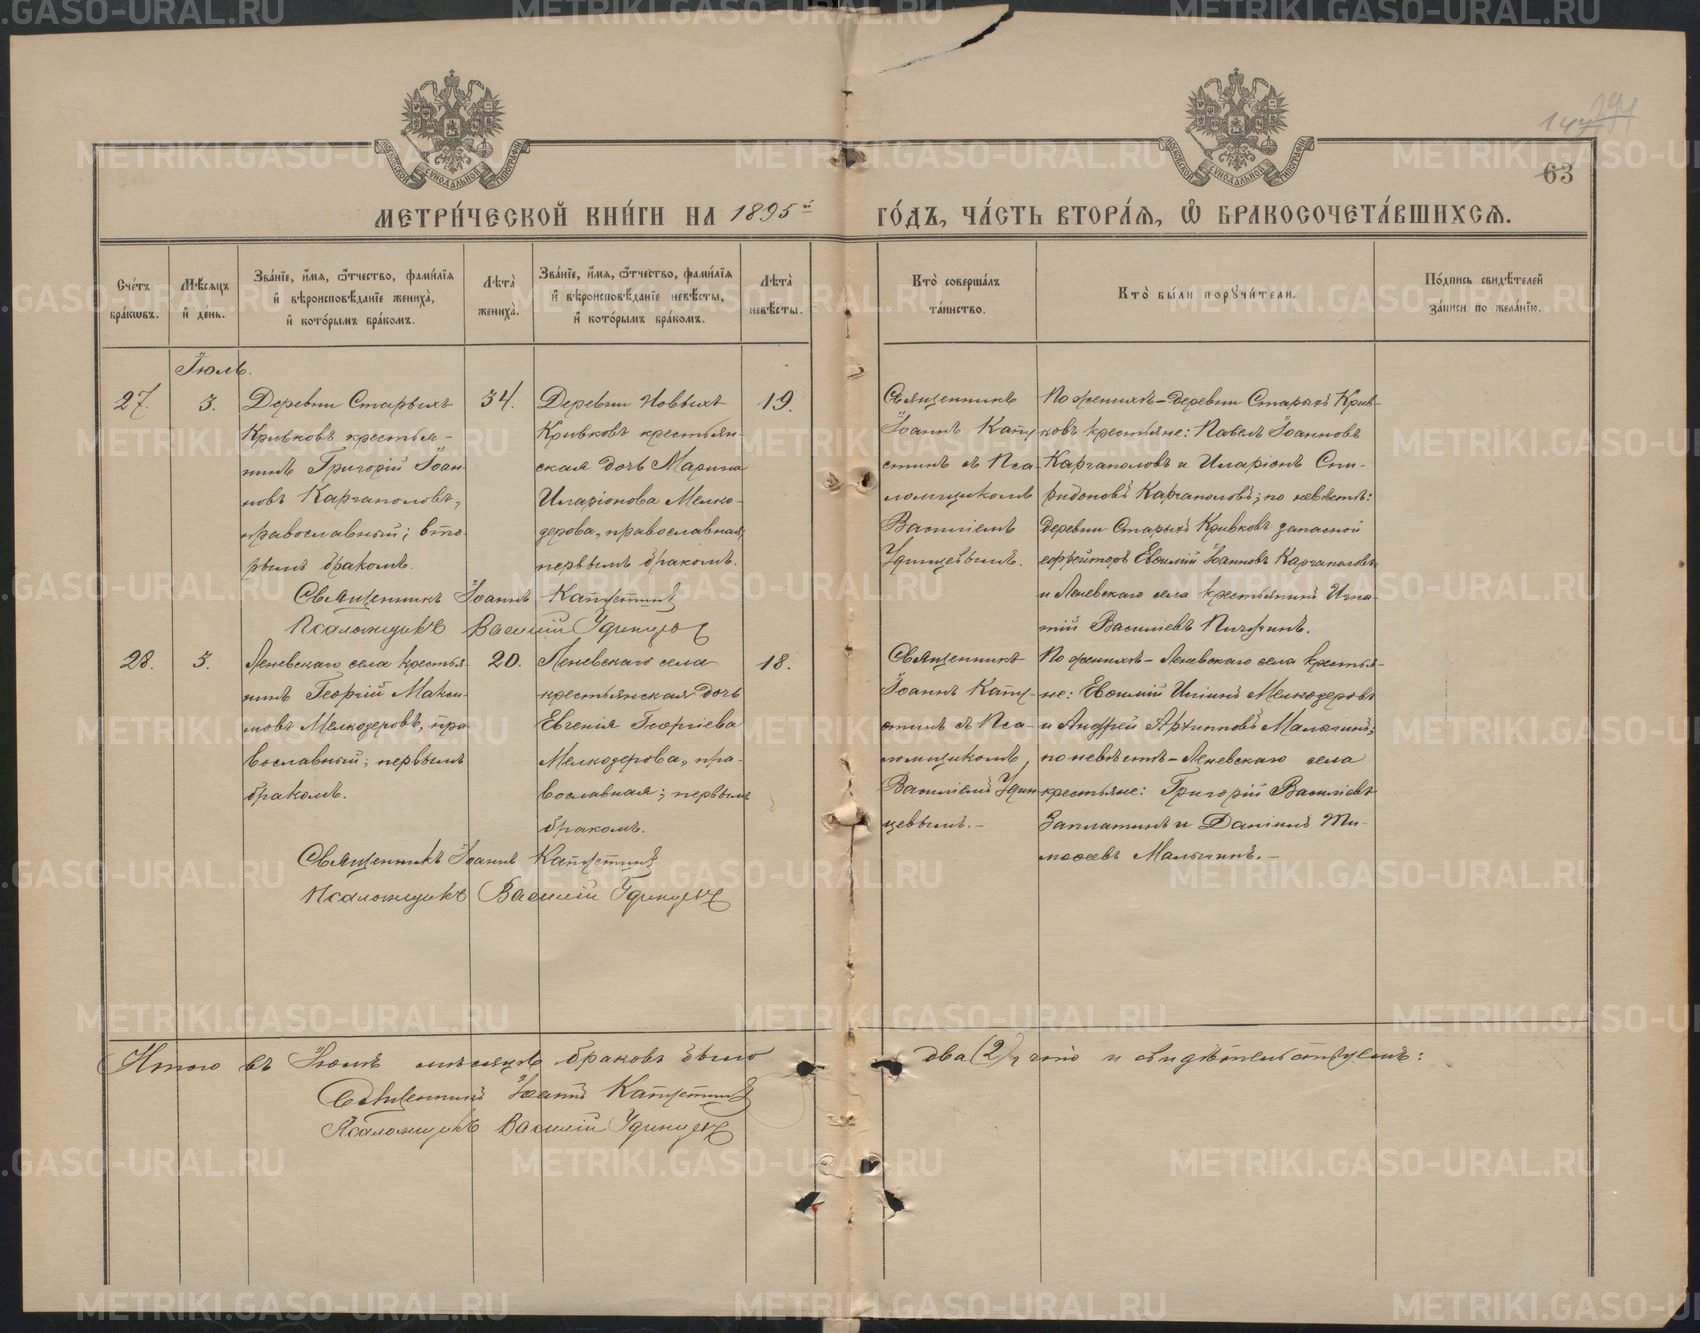 144
63
МЕТРИ́ЧЕСКОЙ КНИ́ГИ НА 1895й ГО́ДЪ, ЧА́СТЬ ВТОРА́Я, Ѡ БРАКОСОЧЕТА́ВШИХСЯ.
Сче́тъ бра́ковъ.
Мѣ́сяцъ и҆ де́нь.
Зва́нїе, и҆́мя, ѻ҆́тчество, фами́лїя и҆ вѣроисповѣ́данїе жениха̀, и҆ кото́рымъ бра́комъ.
Лѣ́та жениха̀.
Зва́нїе, и҆́мя, ѻ҆́тчество, фами́лїя и҆ вѣроисповѣ́данїе невѣ́сты, и҆ кото́рымъ бра́комъ.
Лѣ́та невѣ́сты.
Кто̀ соверша́лъ та́инство.
Кто̀ бы́ли порꙋчи́тели.
По́дпись свидѣ́телей за́писи по жела́нїю.
Іюль.
27.
3.
Деревни Старыхъ
Кривковъ крестья-
нинъ Григорій Іоан
новъ Каргаполовъ,
православный; вто
рымъ бракомъ.
34.
Деревни Новыхъ
Кривковъ крестьян-
ская дочь Марина
Иларіонова Мелко-
дерова, православная,
первымъ бракомъ.
19.
Священникъ
Іоаннъ Капу
стинъ съ Пса
ломщикомъ
Василіемъ
Удинцевымъ.
По женихѣ – деревни Старыхъ Крив-
ковъ крестьяне: Павелъ Іоанновъ
Каргаполовъ и Иларіонъ Спи-
ридоновъ Каргаполовъ; по невѣстѣ:
деревни Старыхъ Кривковъ запасной
ефрейторъ Евѳимій Іоанновъ Каргаполовъ
и Леневскаго села крестьянинъ Игна-
тій Василіевъ Пичугинъ.
Священникъ Іоаннъ Капустинъ
Псаломщикъ Василій Удинцевъ
28.
3.
Леневскаго села крестья
нинъ Георгій Макси
мовъ Мелкодеровъ, пра
вославный; первымъ
бракомъ.
20.
Леневскаго села
крестьянская дочь
Евгенія Георгіева
Мелкодерова, пра-
вославная; первымъ
бракомъ.
18.
Священникъ
Іоаннъ Капу-
стинъ съ Пса-
ломщикомъ
Василіемъ Удин
цевымъ. –
По женихѣ – Леневскаго села крестья-
не: Евѳимій Иліинъ Мелкодеровъ
и Андрей Архиповъ Малыгинъ;
по невѣстѣ – Леневскаго села
крестьяне: Григорій Василіевъ
Заплатинъ и Даніилъ Ти-
моѳеевъ Малыгинъ. –
Священникъ Іоаннъ Капустинъ
Псаломщикъ Василій Удинцевъ
Итого въ Іюлѣ мѣсяцѣ браковъ было два (2), что и свидѣтельствуемъ:
Священникъ Іоаннъ Капустинъ
Псаломщикъ Василій Удинцевъ
METRIKI.GASO-URAL.RU